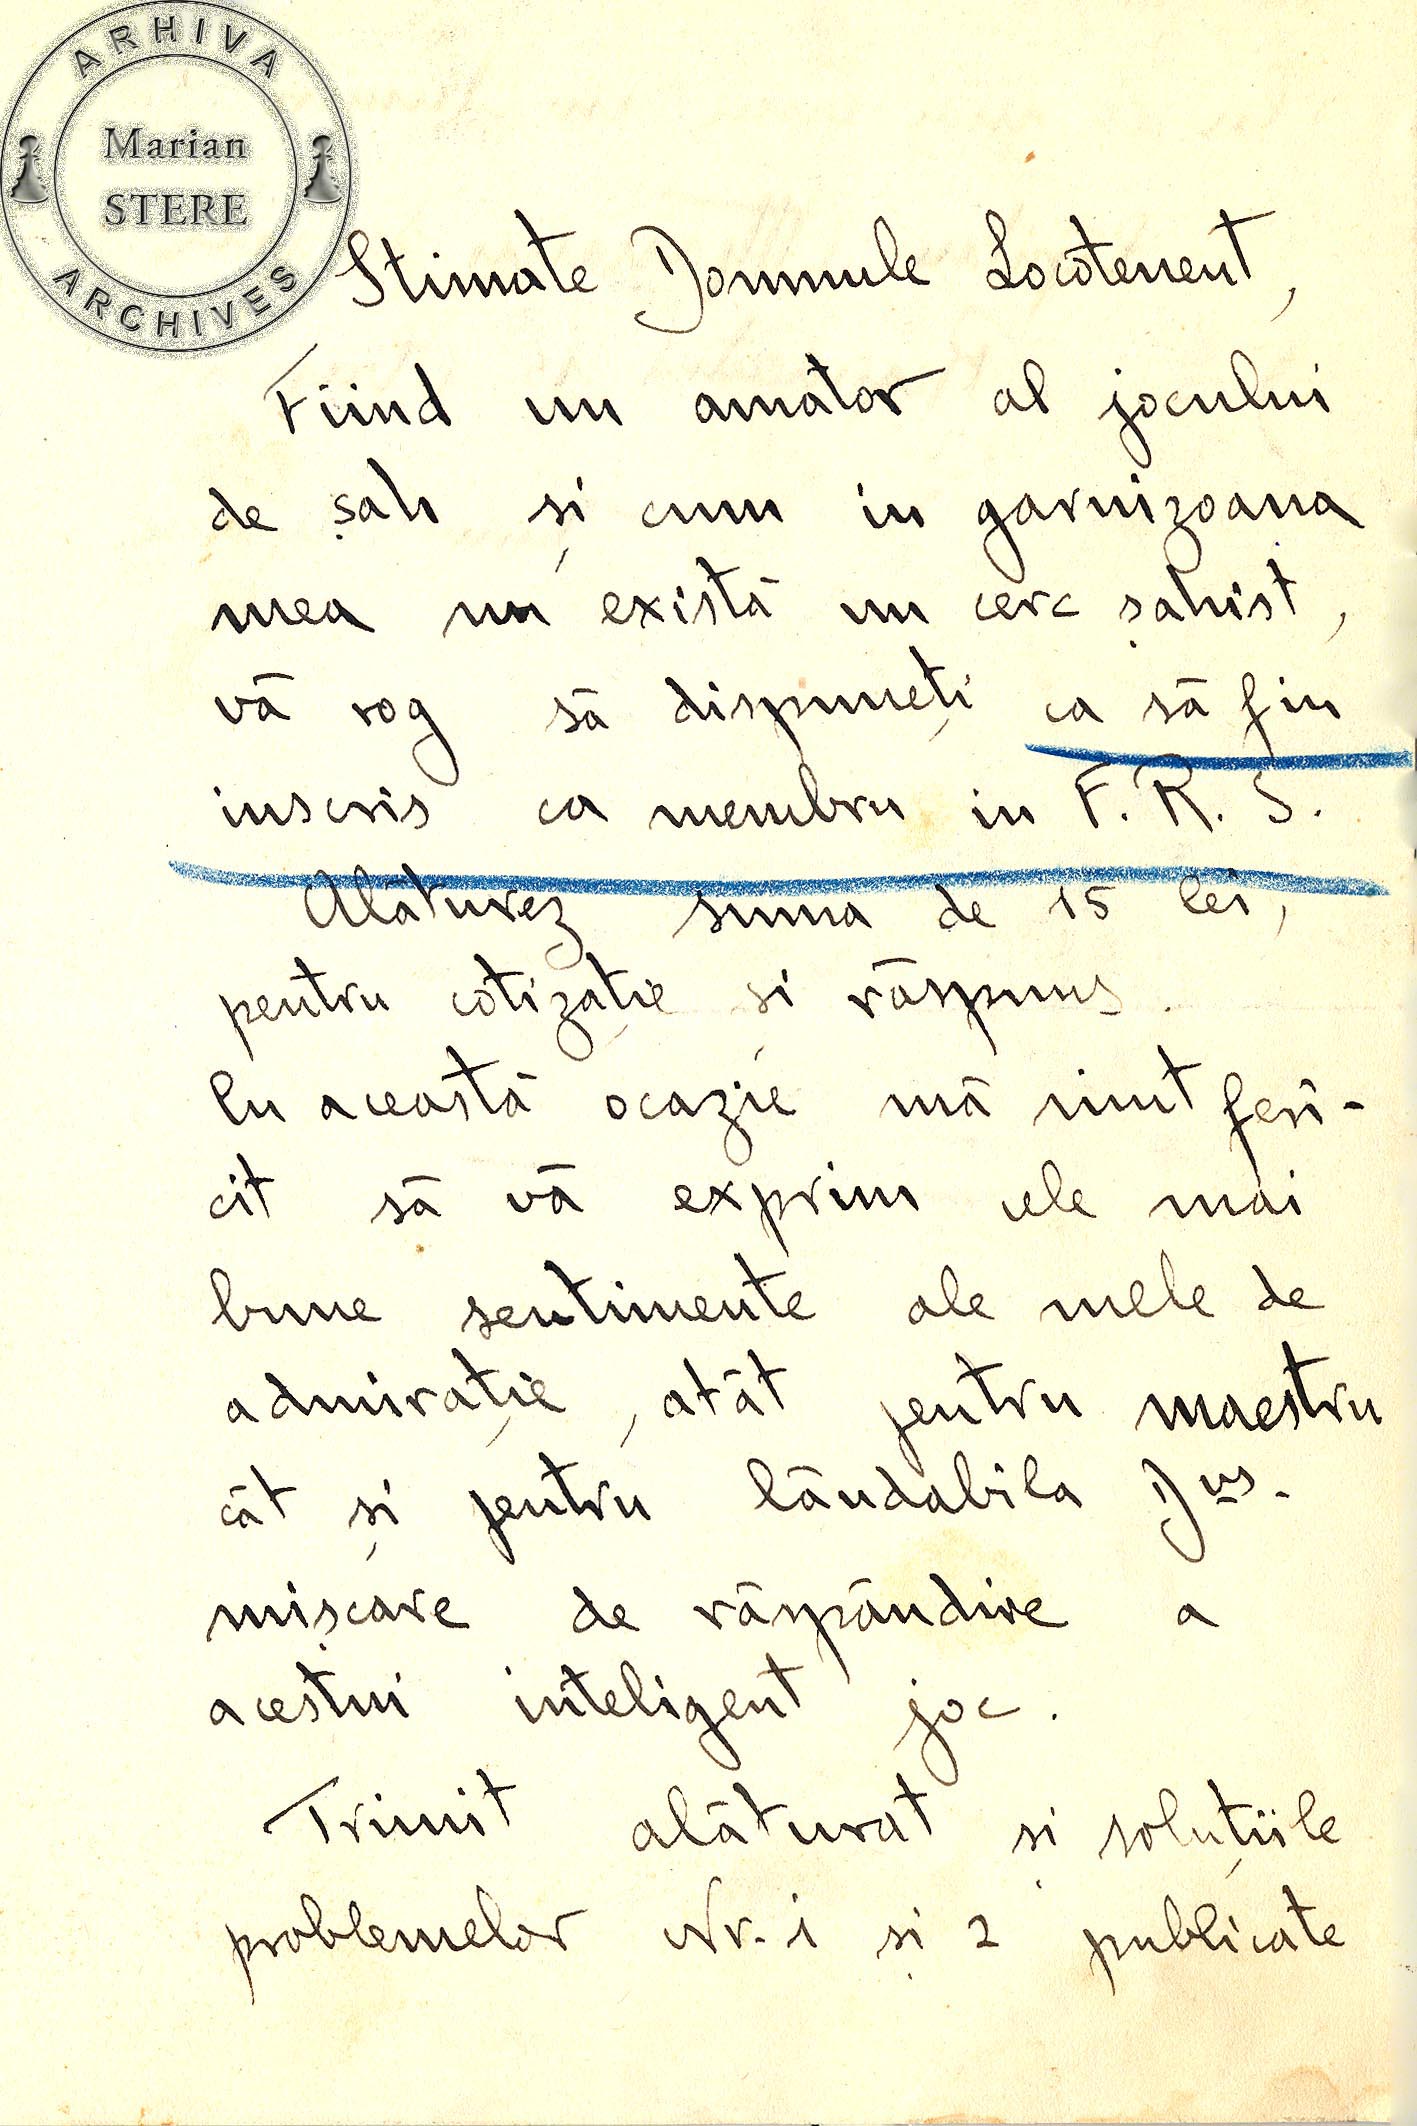 ARHIVA
Marian
STERE
ARCHIVES
Stimate Domnule Locotenent,
Fiind un amator al jocului
de șah și cum in garnizoana
mea nu există un cerc șahist,
vă rog să dispuneți ca să fiu
inscris ca membru in F. R. S.
Alăturez suma de 15 lei,
pentru cotizație și răspuns.
Cu această ocazie mă simt feri-
cit să vă exprim cele mai
bune sentimente ale mele de
admirație, atât pentru maestru
cât și pentru lăudabila Dvs.
mișcare de răspândire a
acestui inteligent joc.
Trimit alăturat și soluțiile
problemelor Nr. 1 și 2 publicate